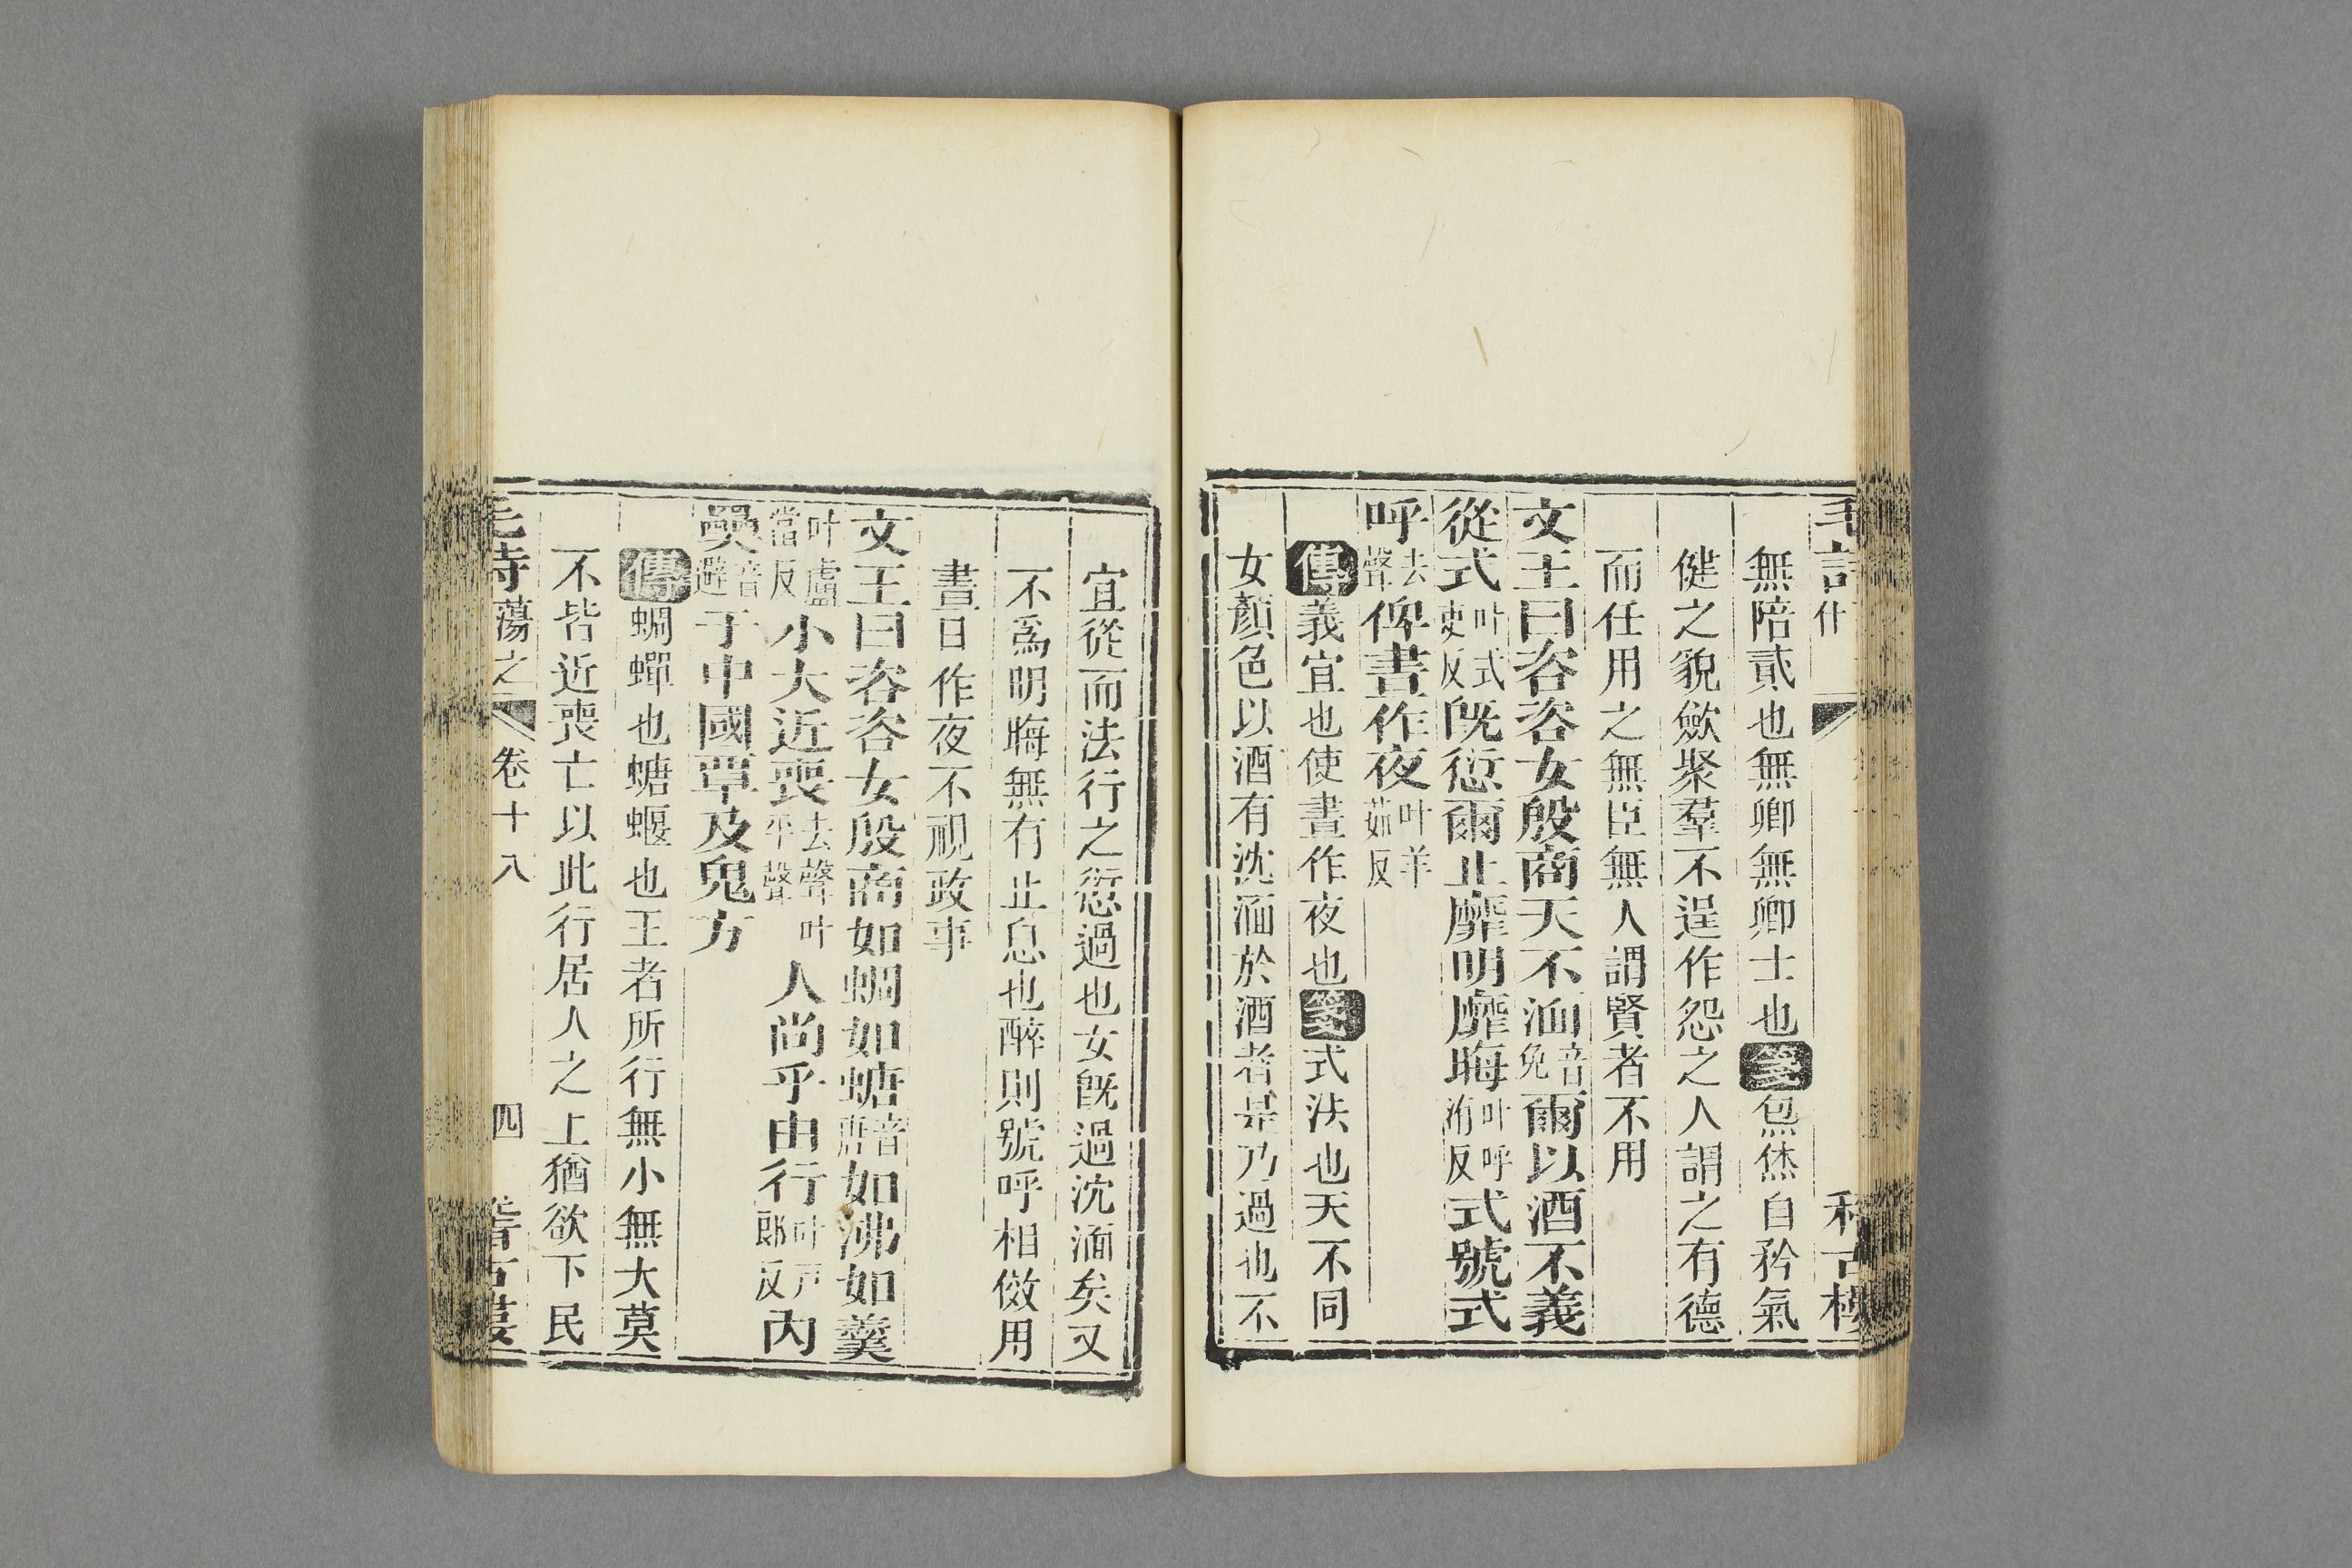 無陪貳也無卿無卿士也箋炰烋自矜氣
健之貌斂聚羣不逞作怨之人謂之有德
而任用之無臣無人謂賢者不用
文王曰咨咨女殷商天不湎音免爾以酒不義
從式叶式吏反旣愆爾止靡明靡晦叶呼洧反式號式
呼去聲俾晝作夜叶羊茹反
傳義宜也使晝作夜也箋式法也天不同
女顏色以酒有沈湎於酒者是乃過也不
宜從而法行之愆過也女旣過沈湎矣又
不爲明晦無有止息也醉則號呼相傚用
晝日作夜不視政事
文王曰咨咨女殷商如蜩如螗音唐如沸如羹
叶盧當反小大近喪去聲叶平聲人尚乎由行叶戸郎反內
奰音避于中國覃及鬼方
傳蜩蟬也螗蝘也王者所行無小無大莫
不皆近喪亡以此行居人之上猶欲下民
毛詩蕩之 卷十八 四 稽古樓